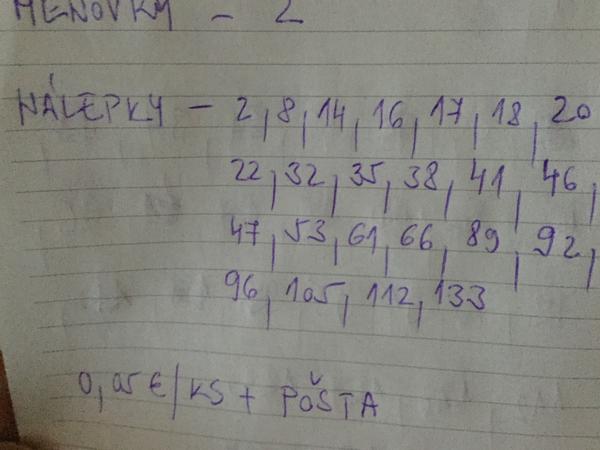 MENOVKY - 2
NÁLEPKY - 2, 8, 14, 16, 17, 18, 20
22, 32, 35, 38, 41, 46,
47, 53, 61, 66, 89, 92,
96, 105, 112, 133
0,05€/KS + POŠTA